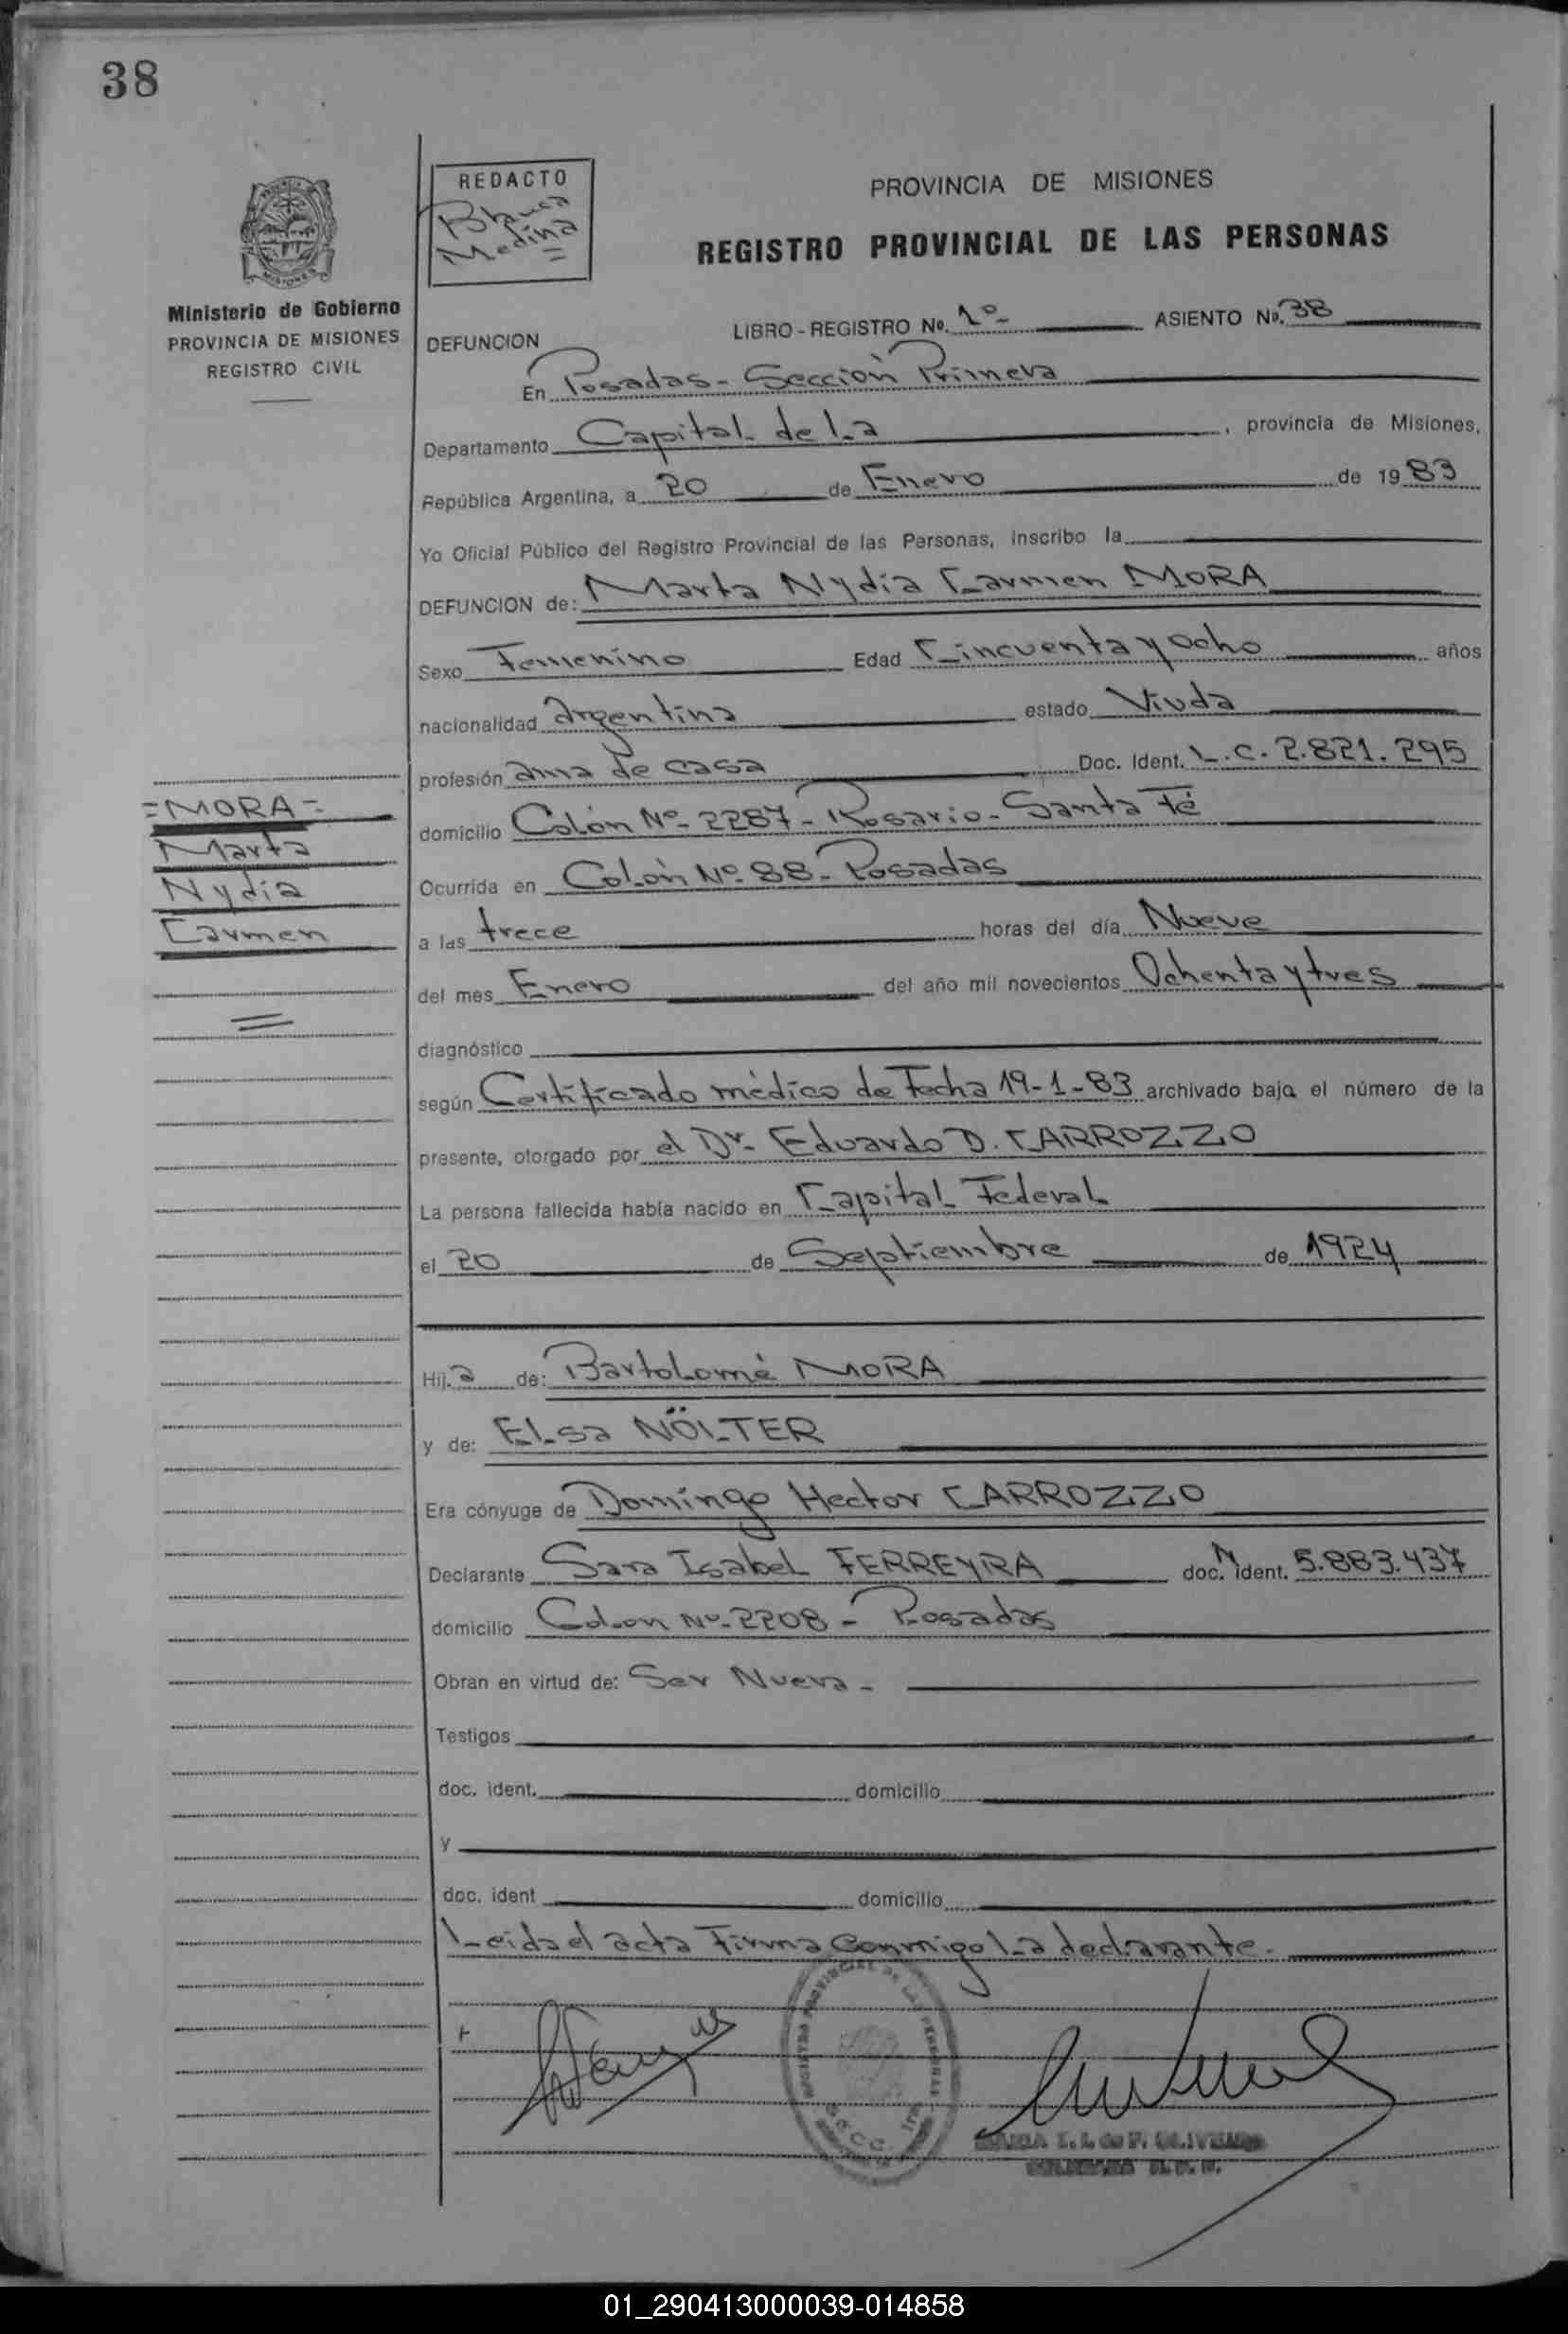 38
REDACTO
Blanca
Medina
PROVINCIA DE MISIONES
REGISTRO PROVINCIAL DE LAS PERSONAS
MISIONES
Ministerio de Gobierno
PROVINCIA DE MISIONES
REGISTRO CIVIL
DEFUNCION
LIBRO - REGISTRO Nº. 1º- ASIENTO Nº. 38
En Posadas - Sección Primera
Departamento Capital de la , provincia de Misiones,
República Argentina, a 20 de Enero de 1983
Yo Oficial Público del Registro Provincial de las Personas, inscribo la
DEFUNCION de: Marta Nydia Carmen MORA
Sexo Femenino Edad Cincuenta y ocho años
nacionalidad argentina estado Viuda
profesión ama de casa Doc. Ident. L.C. 2.821.295
=MORA=
Marta
Nydia
Carmen
domicilio Colón Nº- 2287 - Rosario - Santa Fé
Ocurrida en Colón Nº- 88 - Posadas
a las trece horas del día Nueve
del mes Enero del año mil novecientos Ochenta y tres
diagnóstico
según Certificado médico de Fecha 19-1-83 archivado bajo el número de la
presente, otorgado por el Dr. Eduardo D. CARROZZO
La persona fallecida había nacido en Capital Federal
el 20 de Septiembre de 1924
Hij.a de: Bartolomé MORA
y de: Elsa NÖLTER
Era cónyuge de Domingo Hector CARROZZO
Declarante Sara Isabel FERREYRA doc. N ident. 5.883.437
domicilio Colon Nº- 2208 - Posadas
Obran en virtud de: Ser Nuera -
Testigos
doc. ident. domicilio
y
doc. ident domicilio
Leida el acta Firma Conmigo la declarante.
01_290413000039-014858